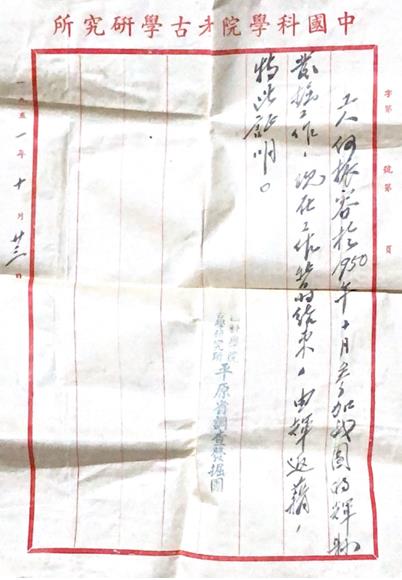 中國科學院考古學研究所
字第 號第 頁
工人何振容於1950年十月參加我團的輝縣
發掘工作，現在工作暫時結束，由輝返籍，
特此証明。
科學院
學研究所
平原省調查發掘團
一九五一年十月廿三日